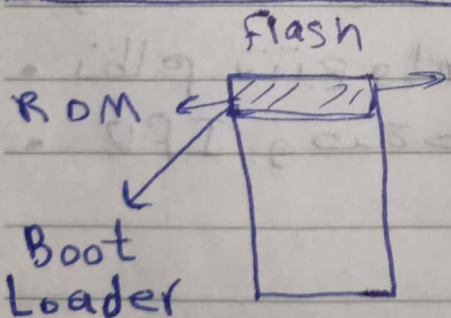 flash
ROM
Boot
Loader